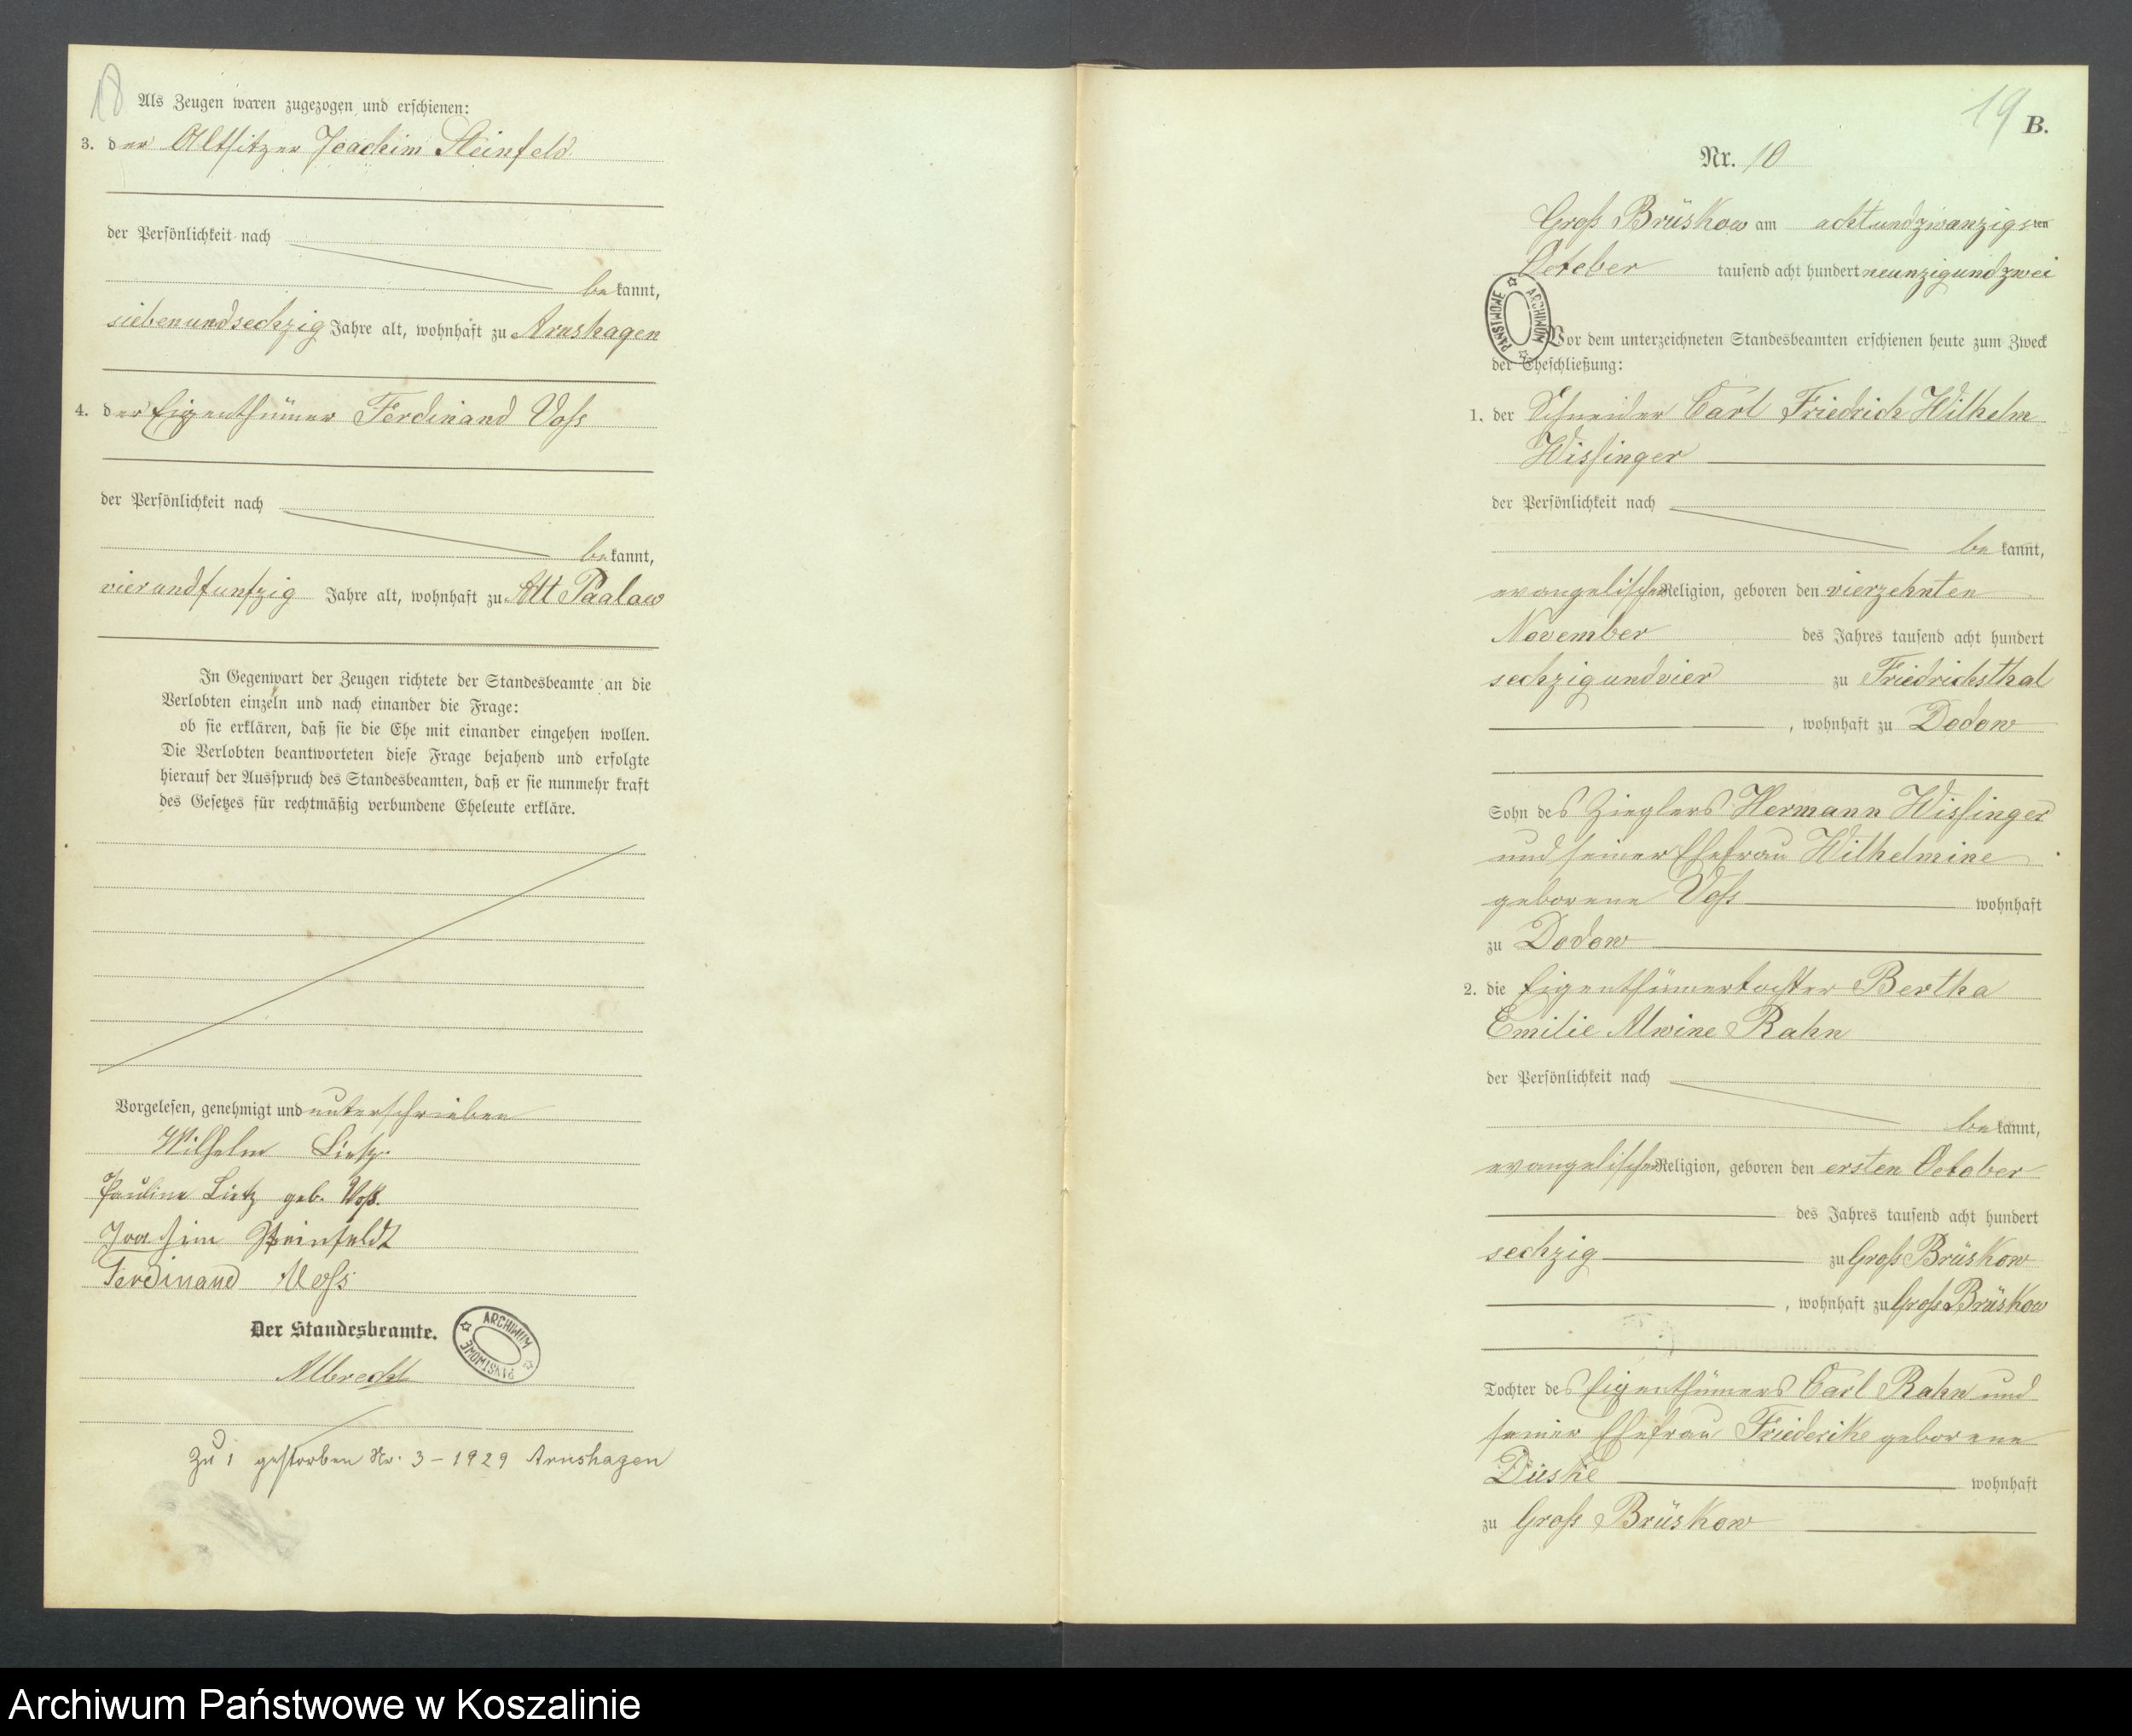 18
Als Zeugen waren zugezogen und erschienen:
3. der Altsitzer Joachim Steinfeld
der Persönlichkeit nach
bekannt,
siebenundsechzig Jahre alt, wohnhaft zu Arnshagen
4. der Eigenthümer Ferdinand Voß
der Persönlichkeit nach
bekannt,
vierundfunfzig Jahre alt, wohnhaft zu Alt Paalow
In Gegenwart der Zeugen richtete der Standesbeamte an die
Verlobten einzeln und nach einander die Frage:
ob sie erklären, daß sie die Ehe mit einander eingehen wollen.
Die Verlobten beantworteten diese Frage bejahend und erfolgte
hierauf der Ausspruch des Standesbeamten, daß er sie nunmehr kraft
des Gesetzes für rechtmäßig verbundene Eheleute erkläre.
Vorgelesen, genehmigt und unterschrieben
Wilhelm Lietz.
Pauline Lietz geb. Voß.
Joachim Steinfeldt
Ferdinand Voß
Der Standesbeamte.
ARCHIWUM PAŃSTWOWE
Albrecht
Zu 1 gestorben Nr. 3-1929 Arnshagen
19
B.
Nr. 10
Groß Brüskow am achtundzwanzigsten
October tausend acht hundert neunzigundzwei
ARCHIWUM PAŃSTWOWE
Vor dem unterzeichneten Standesbeamten erschienen heute zum Zweck
der Eheschließung:
1. der Schneider Carl Friedrich Wilhelm
Wissinger
der Persönlichkeit nach
bekannt,
evangelischer Religion, geboren den vierzehnten
November des Jahres tausend acht hundert
sechzigundvier zu Friedrichsthal
, wohnhaft zu Dodow
Sohn des Zieglers Hermann Wissinger
und seiner Ehefrau Wilhelmine
geborene Voß wohnhaft
zu Dodow
2. die Eigenthümertochter Bertha
Emilie Alwine Rahn
der Persönlichkeit nach
bekannt,
evangelischer Religion, geboren den ersten October
des Jahres tausend acht hundert
sechzig zu Groß Brüskow
, wohnhaft zu Groß Brüskow
Tochter des Eigenthümers Carl Rahn und
seiner Ehefrau Friederike geborene
Düske wohnhaft
zu Groß Brüskow
Archiwum Państwowe w Koszalinie